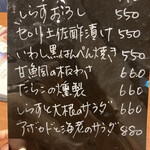 しらすおろし 550
せり土佐酢漬け 550
いわし黒はんぺん焼き 550
甘鯛の板わさ 660
たらこの燻製 660
しらすと大根のサラダ 660
アボカドと海老のサラダ 880